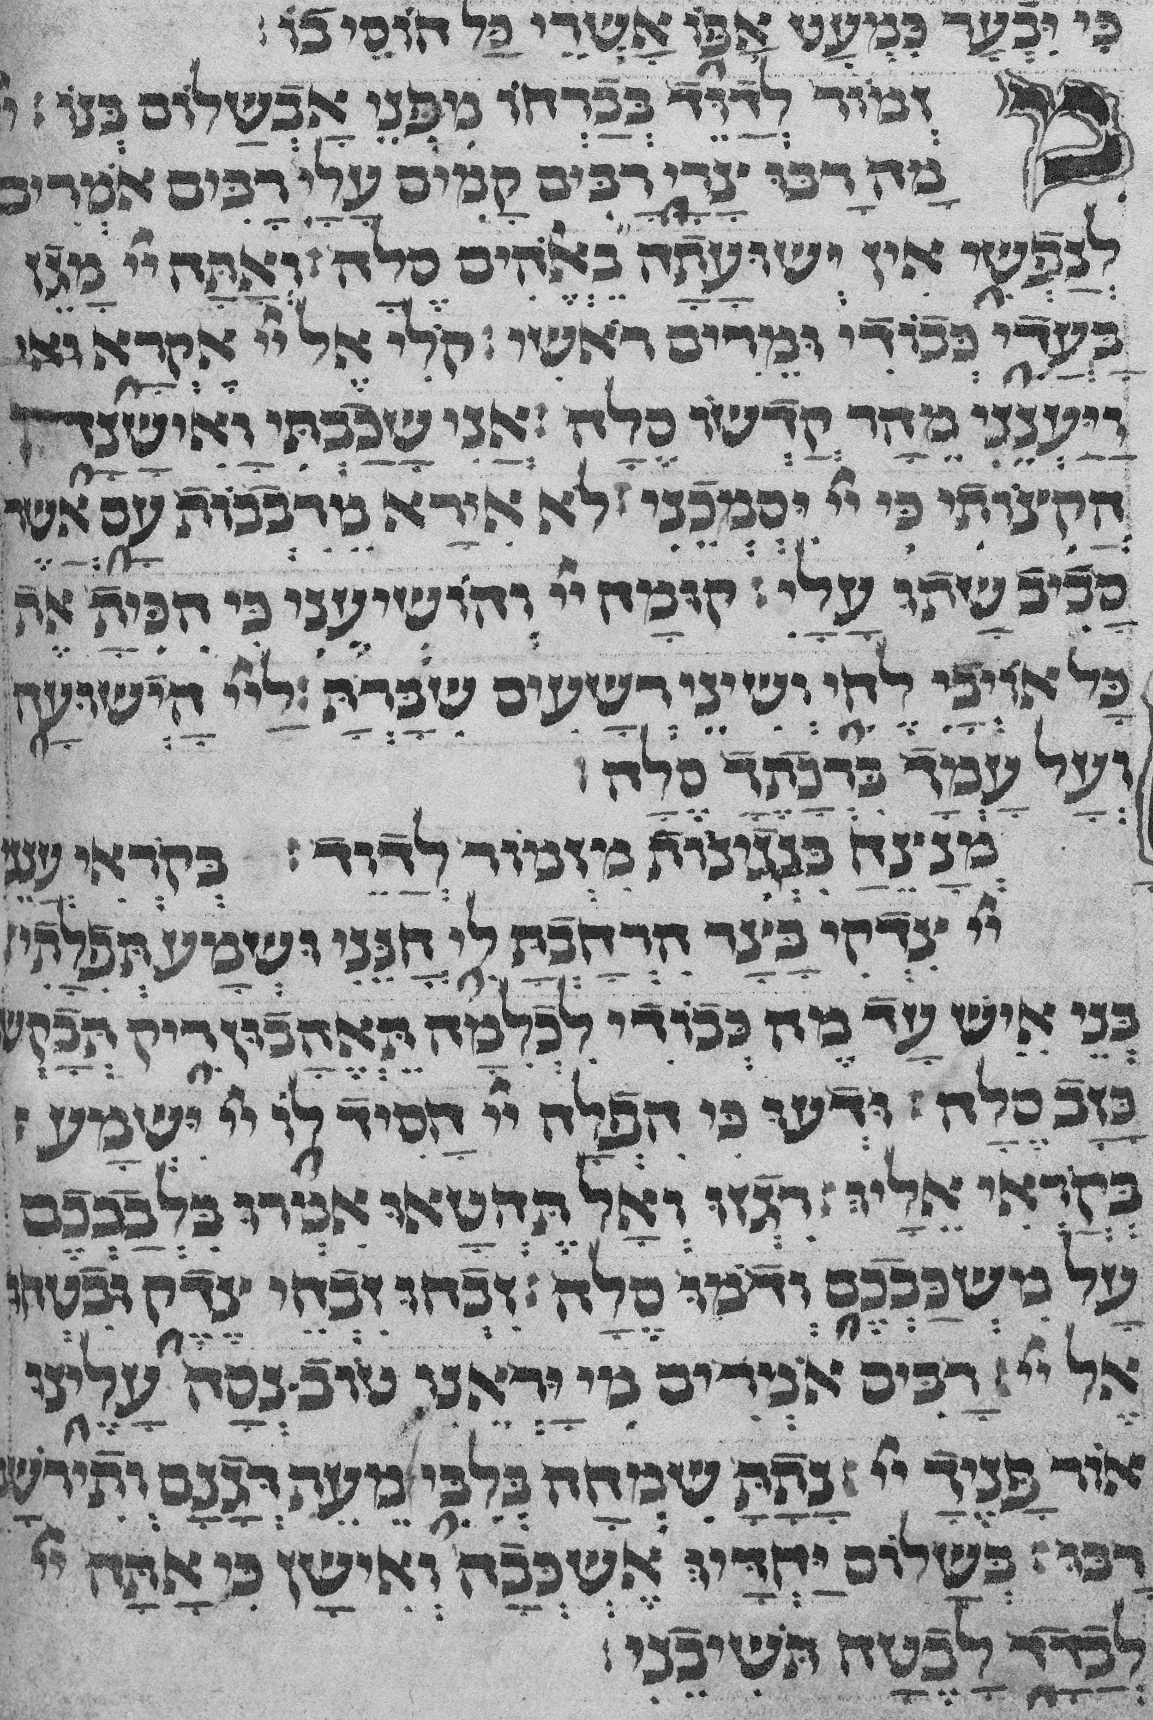 כִּי יִבְעַר כִּמְעַט אַפּוֹ אַשְׁרֵי כָּל חוֹסֵי בוֹ׃
מִזְמוֹר לְדָוִד בְּבָרְחוֹ מִפְּנֵי אַבְשָׁלוֹם בְּנוֹ׃ יי
מָה רַבּוּ צָרָי רַבִּים קָמִים עָלָי׃ רַבִּים אֹמְרִים
לְנַפְשִׁי אֵין יְשׁוּעָתָה בֵאלֹהִים סֶלָה׃ וְאַתָּה יי מָגֵן
בַּעֲדִי כְּבוֹדִי וּמֵרִים רֹאשִׁי׃ קוֹלִי אֶל יי אֶקְרָא
וַיַּעֲנֵנִי מֵהַר קָדְשׁוֹ סֶלָה׃ אֲנִי שָׁכַבְתִּי וָאִישָׁנָה
הֱקִיצוֹתִי כִּי יי יִסְמְכֵנִי׃ לֹא אִירָא מֵרִבְבוֹת עָם אֲשֶׁר
סָבִיב שָׁתוּ עָלָי׃ קוּמָה יי הוֹשִׁיעֵנִי כִּי הִכִּיתָ אֶת
כָּל אוֹיְבַי לֶחִי שִׁנֵּי רְשָׁעִים שִׁבַּרְתָּ׃ לַיי הַיְשׁוּעָה
וְעַל עַמְּךָ בִרְכָתֶךָ סֶּלָה׃
מְנַצֵּחַ בִּנְגִינוֹת מִזְמוֹר לְדָוִד׃ בְּקָרְאִי עֲנֵנִי
יי צִדְקִי בַּצָּר הִרְחַבְתָּ לִּי חָנֵּנִי וּשְׁמַע תְּפִלָּתִי׃
בְּנֵי אִישׁ עַד מֶה כְבוֹדִי לִכְלִמָּה תֶּאֱהָבוּן רִיק תְּבַקְשׁוּ
כָזָב סֶלָה׃ וּדְעוּ כִּי הִפְלָה יי חָסִיד לוֹ יי יִשְׁמַע
בְּקָרְאִי אֵלָיו׃ רִגְזוּ וְאַל תֶּחֱטָאוּ אִמְרוּ בִלְבַבְכֶם
עַל מִשְׁכַּבְכֶם וְדֹמּוּ סֶלָה׃ זִבְחוּ זִבְחֵי צֶדֶק וּבִטְחוּ
אֶל יי׃ רַבִּים אֹמְרִים מִי יַרְאֵנוּ טוֹב נְסָה עָלֵינוּ
אוֹר פָּנֶיךָ יי׃ נָתַתָּה שִׂמְחָה בְלִבִּי מֵעֵת דְּגָנָם וְתִירֹשָׁם
רָבּוּ׃ בְּשָׁלוֹם יַחְדָּיו אֶשְׁכְּבָה וְאִישָׁן כִּי אַתָּה יי
לְבָדָד לָבֶטַח תּוֹשִׁיבֵנִי׃